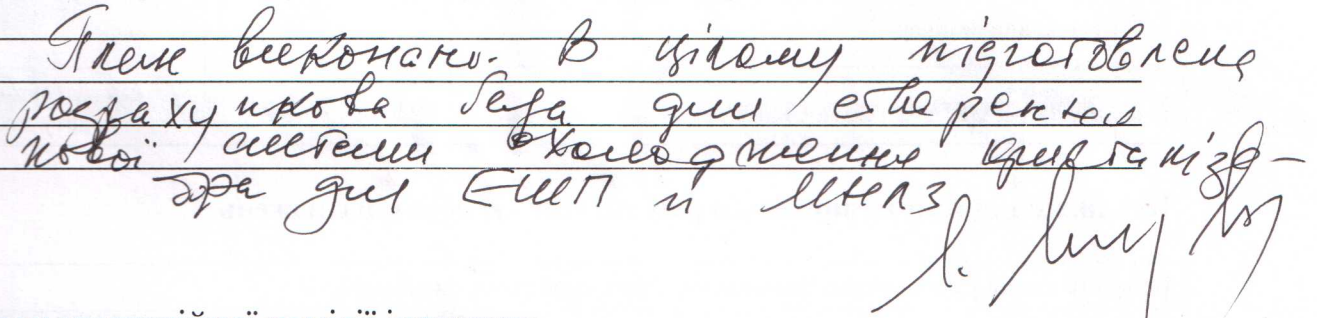 План виконано. В цілому підготовлена
розрахункова база для створення
нової системи охолодження кристаліза-
тора для ЕШП и МНЛЗ